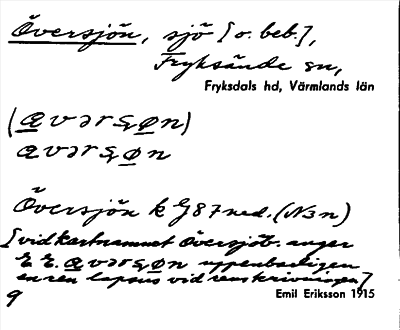 Översjön, sjö [o. beb.],
Fryksände sn,
Fryksdals hd, Värmlands län
Översjön k G87 ned. (N3n)
[vid kartnamnet Översjöt. anger
E E. uppenbarligen
en ren lapsus vid renskrivningen]
Emil Eriksson 1915
9